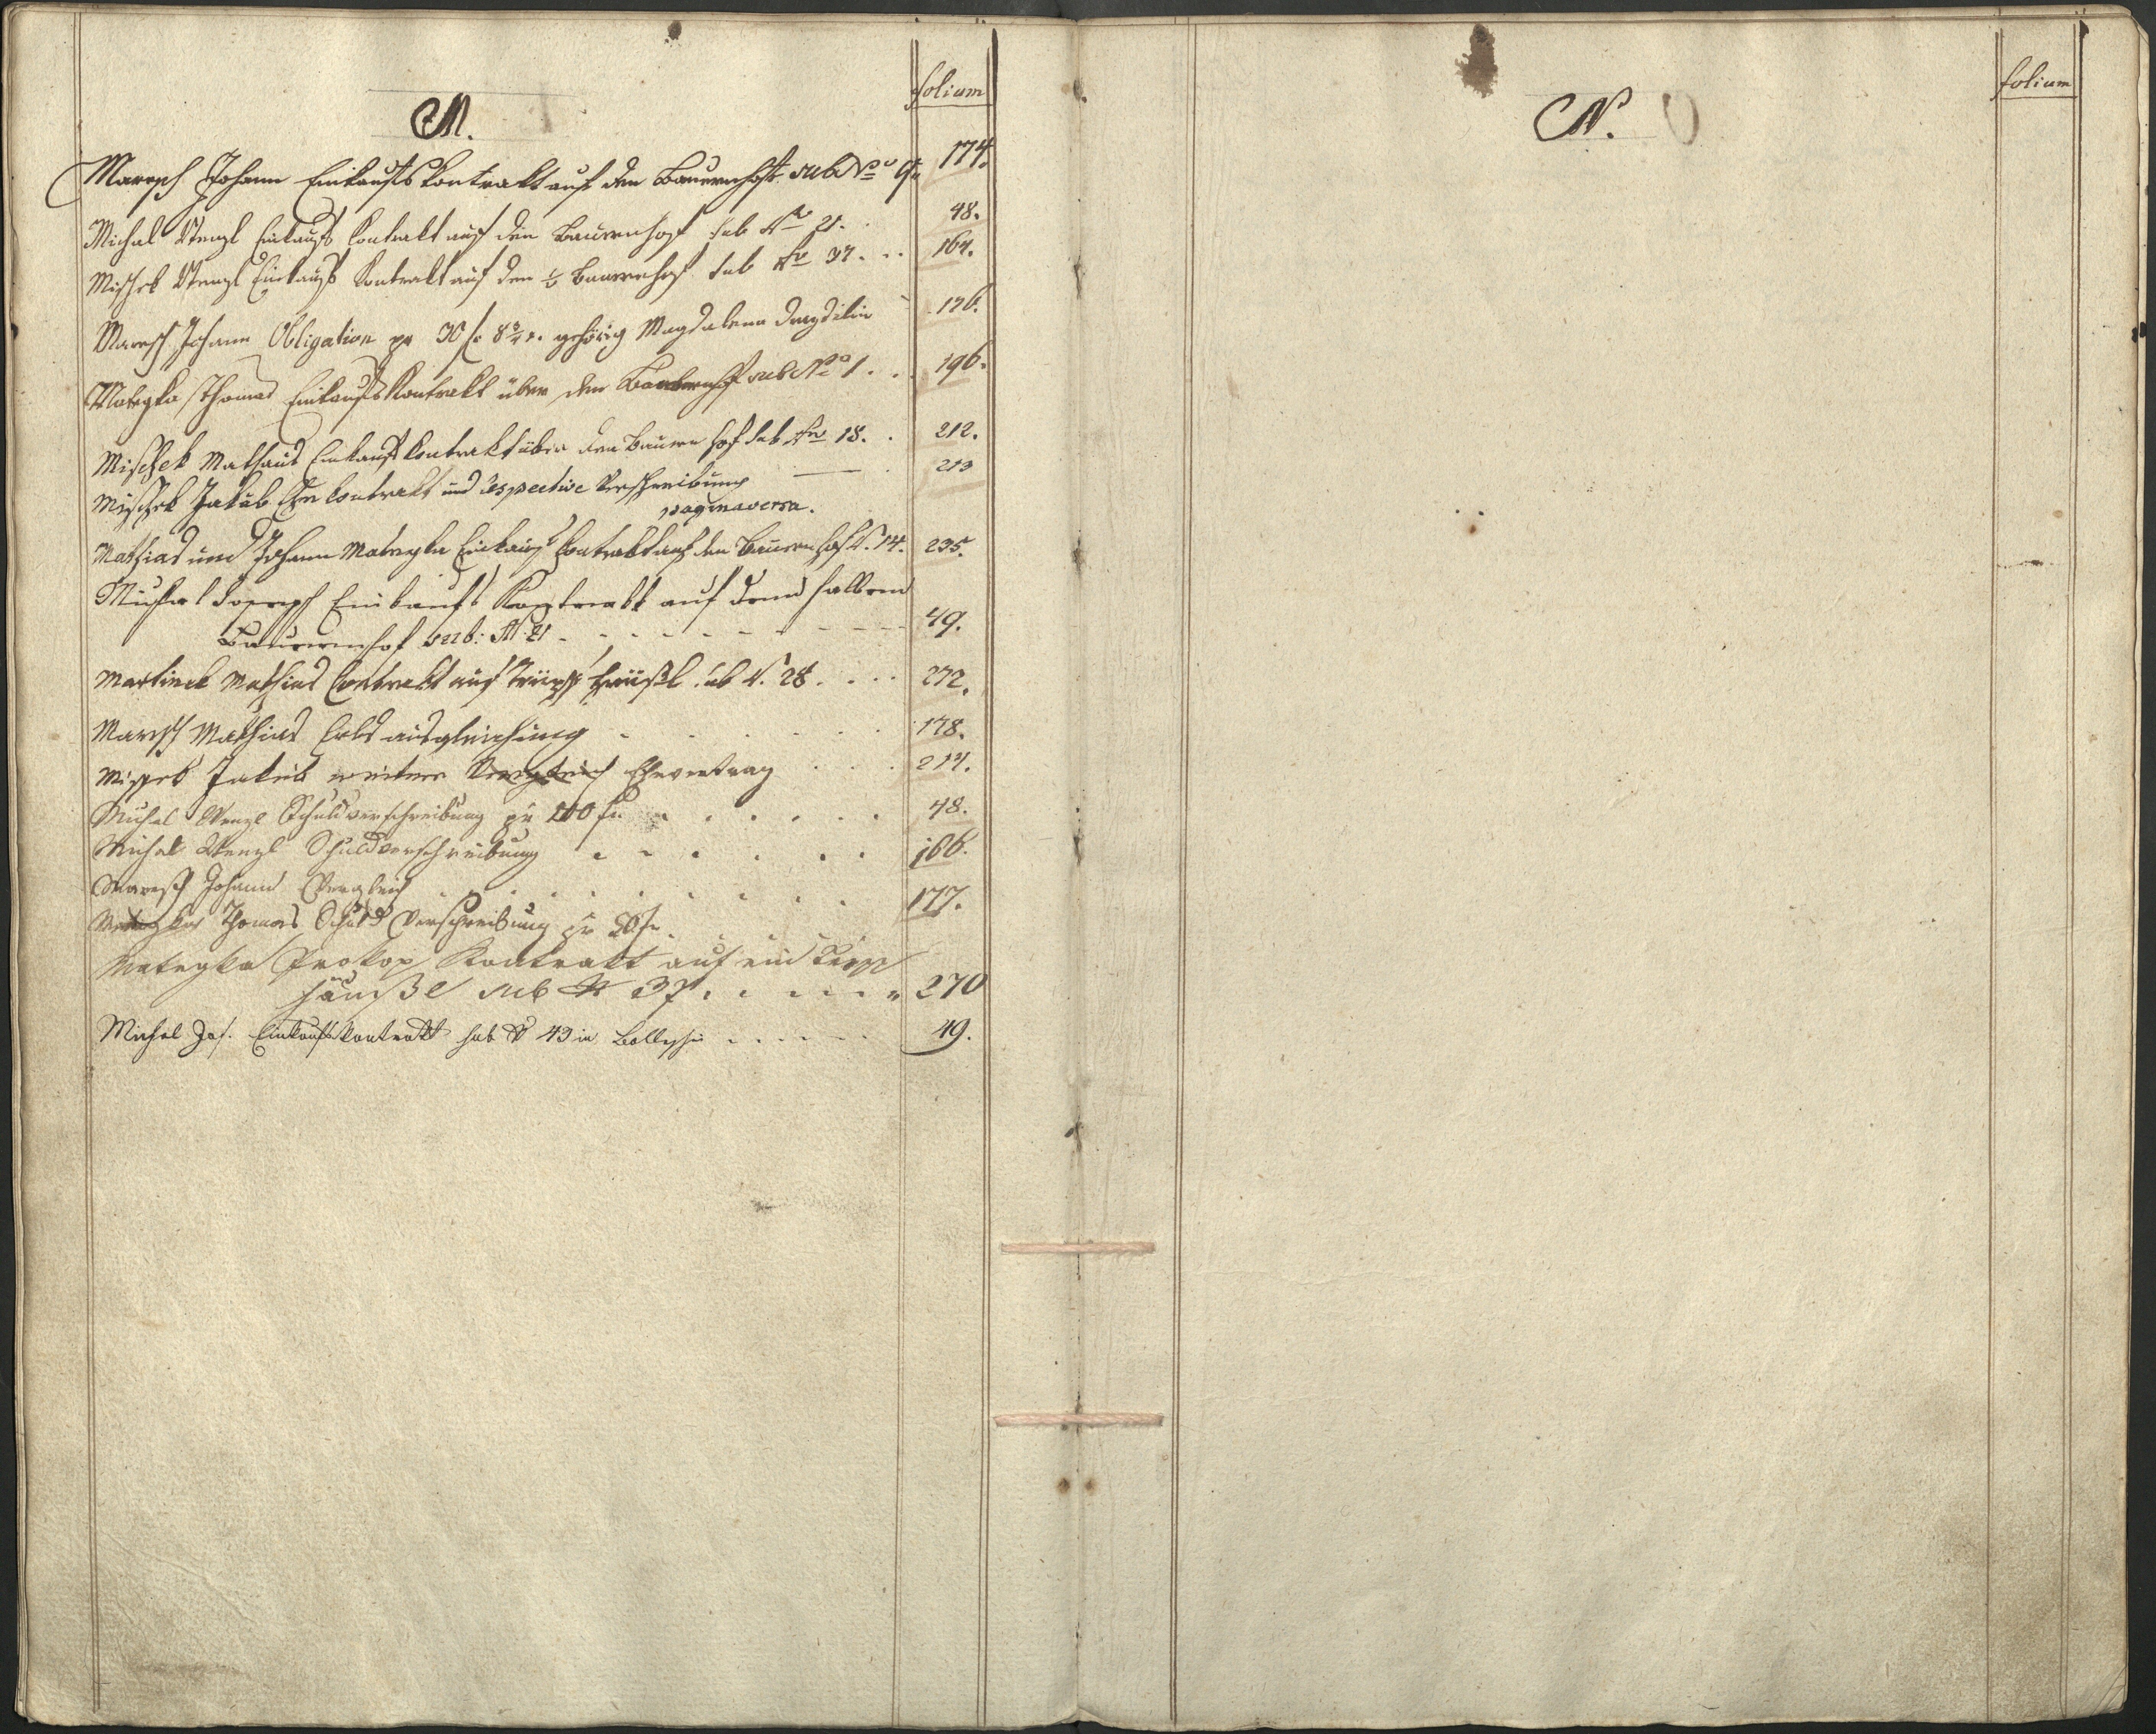 folium
M.
Maresch Johann Einkaufs Kontrakt auf den Bauernhof sub No 9. 174.
Michal Wenzl Einkaufs Contrakt auf den Bauernhof sub No 21. 48.
Mischek Wenzl Einkaufs Kontrakt auf den ½ Bauernhof sub No 37. 164.
Maresch Johann Obligation pr 30 f. gehörig Magdalena 176.
Mategka Thomas Einkaufs Kontrakt über den Bauernhof sub No 1. 196.
Mischek Mathaus Einkaufs Contrakt über den Bauern hof sub No 18. 212.
Mischek Jakub Ehe Contrakt und respective Verschreibung 213
pagina versa.
Mathias und Johann Mategka Einkaufs Contrakt auf den Bauernhof N. 14. 235.
Michal Joseph Einkaufs Kontrakt auf dem halben
Bauernhof sub: N: 21 49.
Martinek Mathias Contrakt auf häußl sub N. 28 272.
Maresch Mathias Erbs ausgleichung 178.
Mischek Jakub weiterer Vergleich Ehevertrag 214.
Michal Wenzl Schuldverschreibung pr 100 f. 48.
Michal Wenzl Schuldverschreibung 166.
Maresch Johann Vergleich 177.
Mategka Thomas Schuld Verschreibung pr 50 f.
Mategka Prokop Kontrakt auf ein
häußl sub N 37. 270
Michal Jos. Einkaufskontrakt sub N 43 in 49.
folium
N.